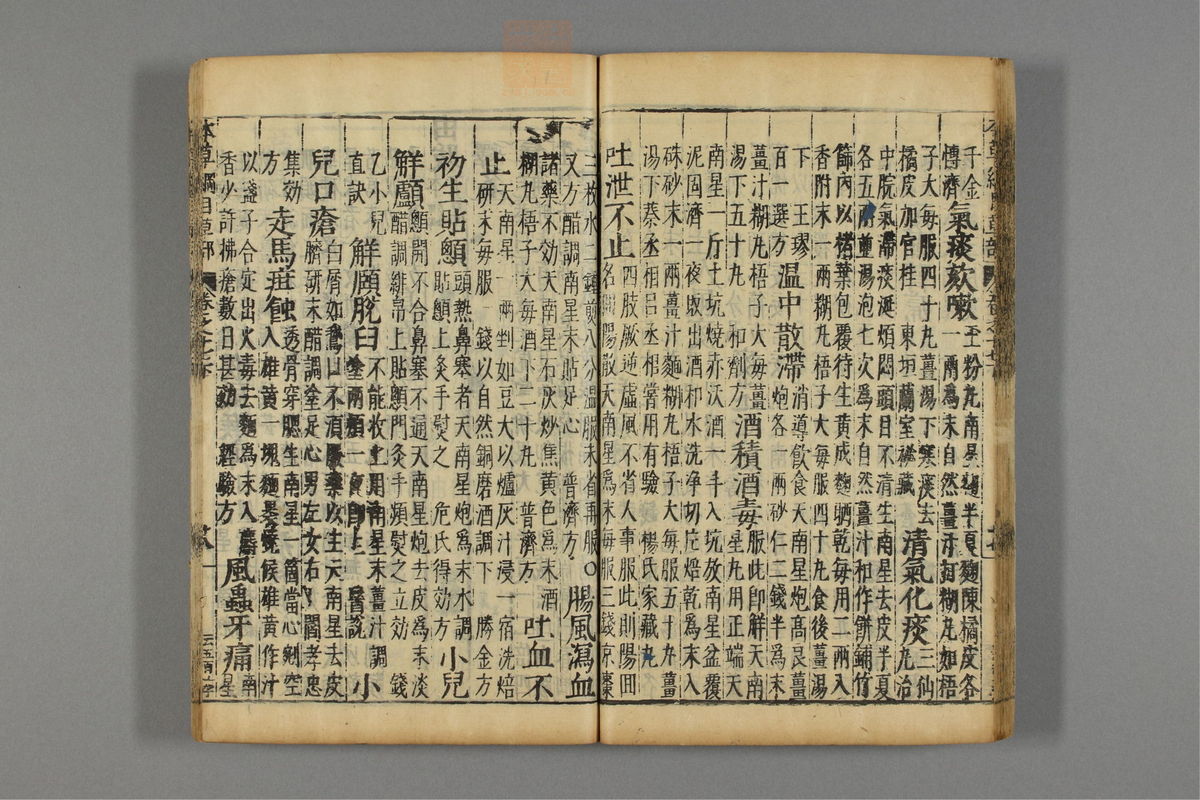 千金
博濟
氣痰欬嗽
玉粉丸南星麴半夏麴陳橘皮各
一兩為末自然薑汁打糊丸如梧
子大每服四十丸薑湯下寒痰去
橘皮加官桂 東垣蘭室秘藏
清氣化痰
三仙
丸治
中脘氣滯痰涎煩悶頭目不清生南星去皮半夏
各五兩並湯泡七次為末自然薑汁和作餅鋪竹
篩內以楮葉包覆待生黃成麴晒乾每用二兩入
香附末一兩糊丸梧子大每服四十丸食後薑湯
下 王璆
百一選方
温中散滯
消導飲食天南星炮高良薑
炮各一兩砂仁二錢半為末
薑汁糊丸梧子大每薑
湯下五十丸 和劑方
酒積酒毒
服此即解天南
星丸用正端天
南星一斤土坑燒赤沃酒一斗入坑放南星盆覆
泥固濟一夜取出酒和水洗淨切片焙乾為末入
硃砂末一兩薑汁麵糊丸梧子大每服五十丸薑
湯下蔡丞相呂丞相嘗用有驗 楊氏家藏
吐泄不止
四肢厥逆虛風不省人事服此則陽回
名回陽散天南星為末每服三錢京棗
三枚水二鍾煎八分温服未省再服○
又方醋調南星末貼足心 普濟方
腸風瀉血
諸藥不效天南星石灰炒焦黃色為末酒
糊丸梧子大每酒下二十丸 普濟方
吐血不
止
天南星一兩剉如豆大以爐灰汁浸一宿洗焙
研末每服一錢以自然銅磨酒調下 勝金方
初生貼顖
頭熱鼻塞者天南星炮為末水調
貼顖上炙手熨之 危氏得効方
小兒
解顱
顖開不合鼻塞不通天南星炮去皮為末淡
醋調緋帛上貼顖門炙手頻熨之立効 錢
乙小兒
直訣
解頤脫臼
不能收上用南星末薑汁調
塗兩頰一夜即上 醫說
小
兒口瘡
白屑如鵝口不須服藥以生天南星去皮
臍研末醋調塗足心男左女右 閻孝忠
集効
方
走馬疳蝕
透骨穿腮生南星一箇當心剜空
入雄黃一塊麵裹燒候雄黃作汁
以盞子合定出火毒去麵為末入麝
香少許拂瘡數日甚効 經驗方
風蟲牙痛
南
星
本草綱目草部 卷之十七下